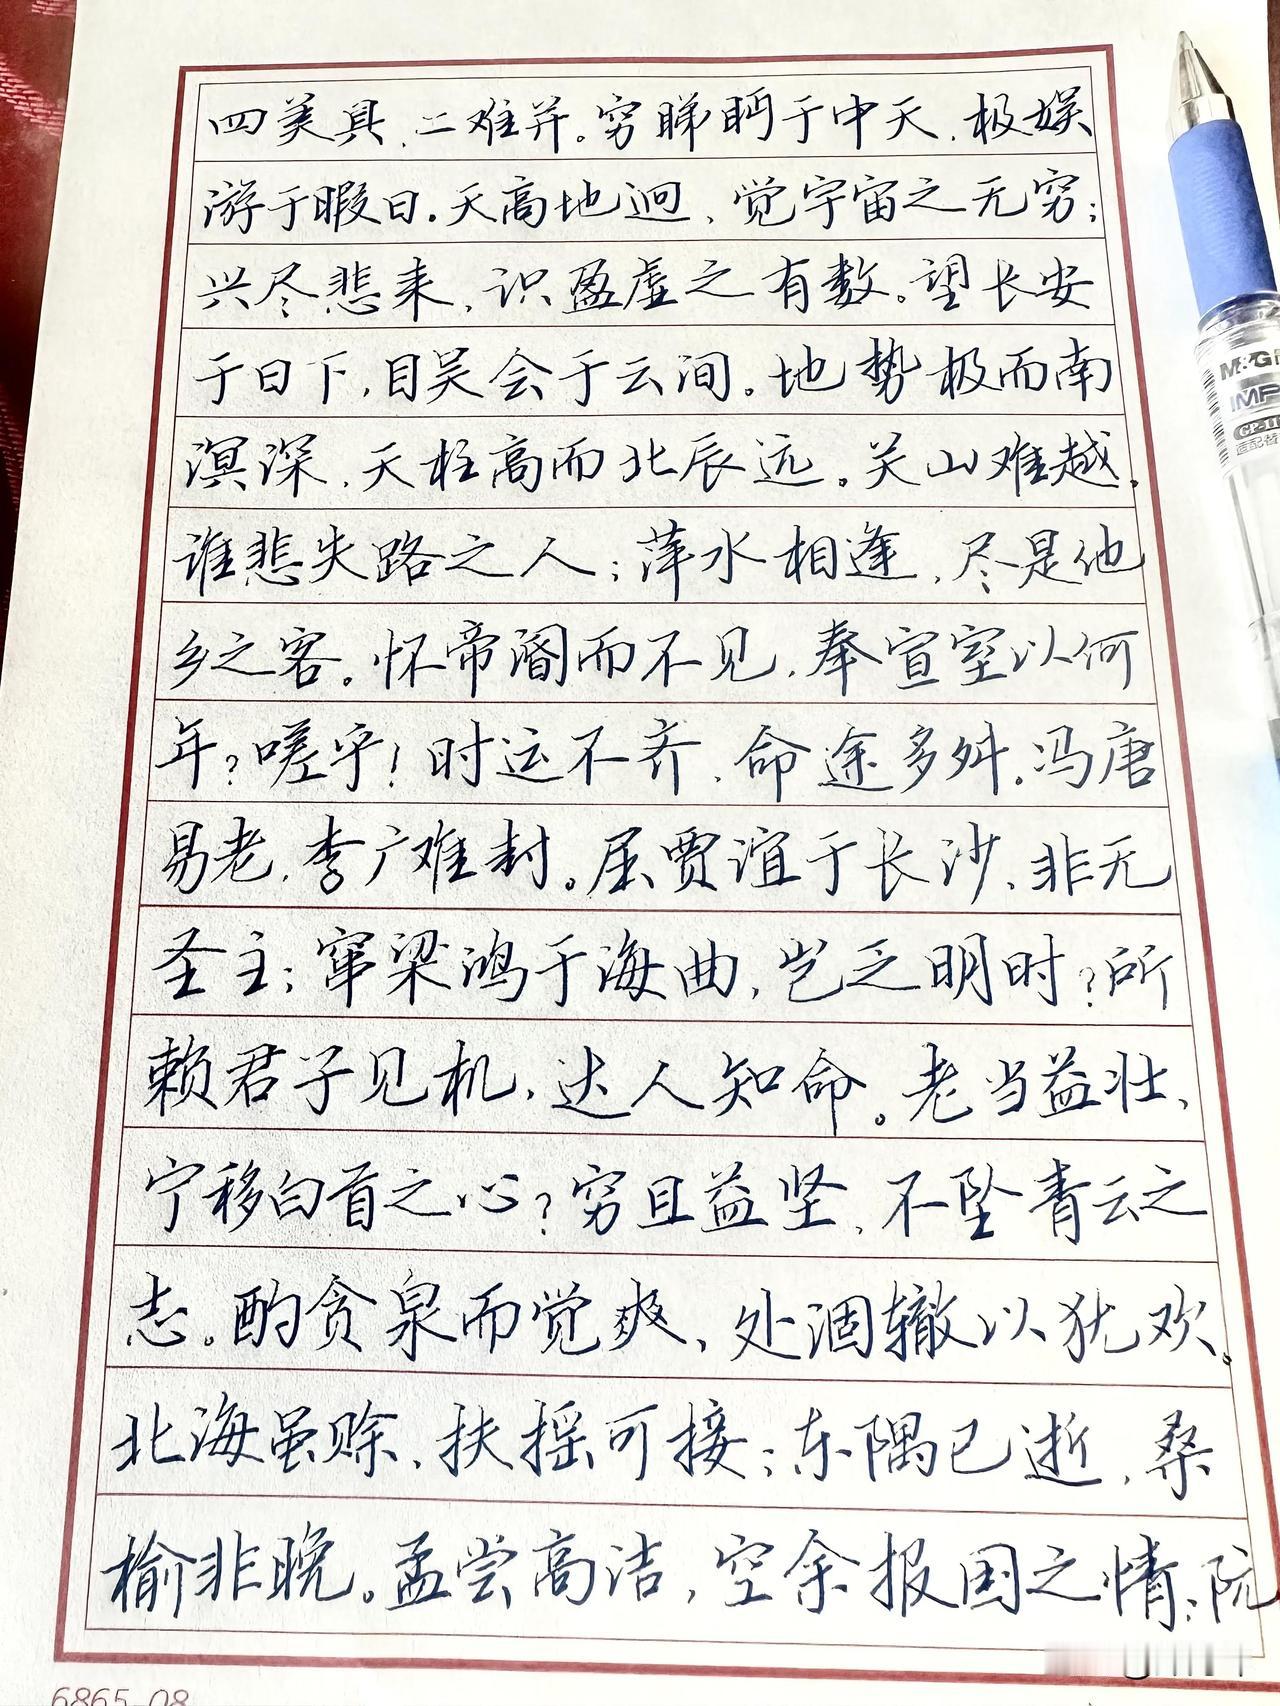 四美具,二难并。穷睇眄于中天,极娱
游于暇日.天高地迥、觉宇宙之无穷;
兴尽悲来,识盈虚之有数。望长安
于日下,目吴会于云间。地势极而南
溟深,天柱高而北辰远。关山难越,
谁悲失路之人;萍水相逢,尽是他
乡之客。怀帝阍而不见,奉宣室以何
年?嗟乎!时运不齐,命途多舛。冯唐
易老,李广难封。屈贾谊于长沙、非无
圣主;窜梁鸿于海曲,岂乏明时?所
赖君子见机,达人知命。老当益壮、
宁移白首之心?穷且益坚,不坠青云之
志。酌贪泉而觉爽、处涸辙以犹欢。
北海虽赊,扶摇可接;东隅已逝,桑
榆非晚。孟尝高洁,空余报国之情;阮
M&G
GP-11
6865-08